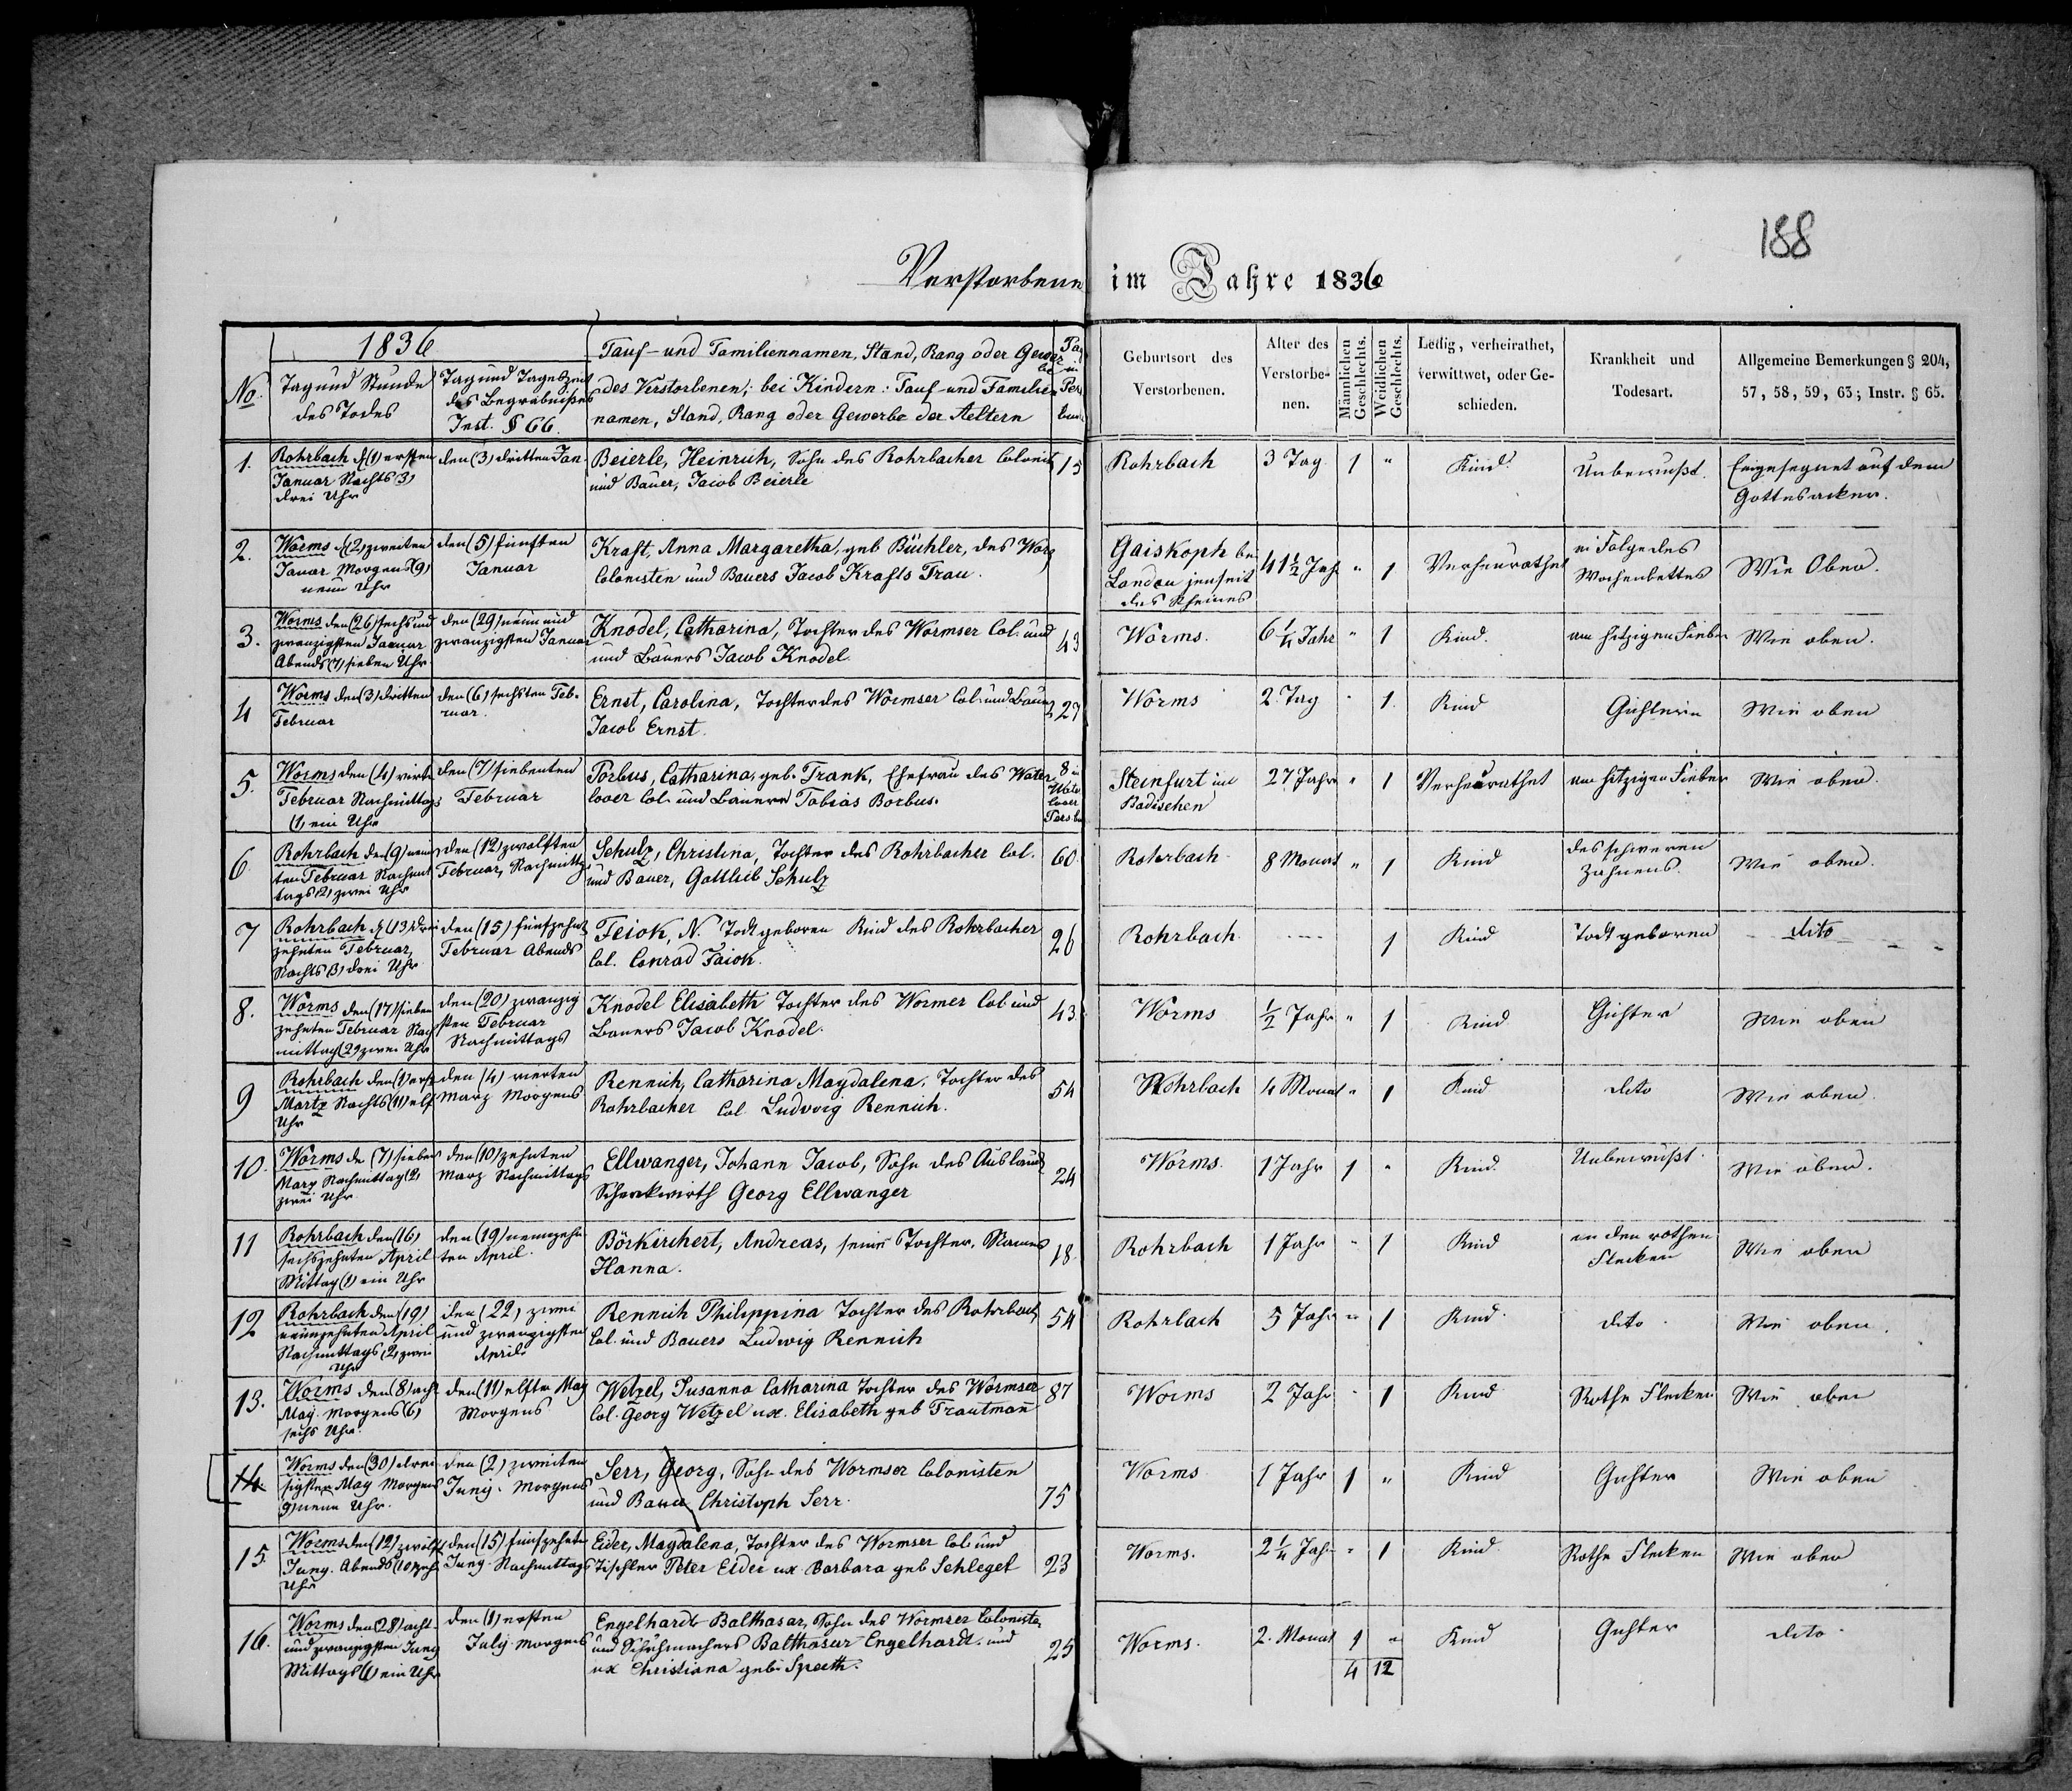 188
Verstorbene im Jahre 1836
1836
No.
Tag und Stunde
des Todes
Tag und Tageszeit
des Begräbnißes
Inst. § 66.
Tauf- und Familiennamen, Stand, Rang oder Gewerbe
des Verstorbenen; bei Kindern: Tauf und Familien
namen, Stand, Rang oder Gewerbe der Aeltern
Geburtsort des
Verstorbenen.
Alter des
Verstorbe-
nen.
Männlichen
Geschlechts.
Weiblichen
Geschlechts.
Ledig, verheirathet,
verwittwet, oder Ge-
schieden.
Krankheit und
Todesart.
Allgemeine Bemerkungen § 204,
57, 58, 59, 63; Instr. § 65.
1.
Rohrbach d (1) ersten
Januar Nachts (3)
drei Uhr
den (3) dritten Jan.
Beierle, Heinrich, Sohn des Rohrbacher Colonist
und Bauer, Jacob Beierle
15
Rohrbach
3 Tag
1
"
Kind.
Unbewußt.
Eingesegnet auf dem
Gottesacker.
2.
Worms d (2) zweiten
Januar Morgens (9)
neun Uhr
den (5) fünften
Januar
Kraft, Anna Margaretha, geb Büchler, des Worms
Colonisten und Bauers Jacob Krafts Frau.
Gaiskoph bei
Landau jenseit
des Rheines
41 1/2 Jahr
"
1
Verheurathet
in Folge des
Wochenbettes
Wie Oben.
3.
Worms den (26) sechs und
zwanzigsten Januar
Abends (7) sieben Uhr
den (29) neun und
zwanzigsten Januar
Knodel, Catharina, Tochter des Wormser Col. und
und Bauers Jacob Knodel
43
Worms.
6 1/4 Jahr
"
1
Kind.
am hitzigen Fieber
Wie oben.
4
Worms den (3) dritten
Februar
den (6) sechsten Feb-
ruar.
Ernst, Carolina, Tochter des Wormser Col. und Bauers
Jacob Ernst.
27
Worms
2. Tag
"
1.
Kind
Gichtern
Wie oben
5.
Worms den (4) virten
Februar Nachmittags
(1) ein Uhr
den (7) siebenten
Februar
Porbus, Catharina, geb. Frank, Ehefrau des Water
looer Col. und Bauern Tobias Borbus.
8 in
Water
looer
Pers b
Steinfurt im
Badischen
27 Jahr
"
1
Verheurathet
am hitzigen Fieber
Wie oben.
6
Rohrbach den (9) neun
ten Februar Nachmit
tags (2) zwei Uhr
den (12) zwölften
Februar, Nachmittgs
Schulz, Christina, Tochter des Rohrbacher Col.
und Bauer, Gottlieb Schulz
60
Rohrbach
8 Monat
"
1
Kind
des schweren
Zahnens.
Wie oben.
7
Rohrbach d (13) drei
zehnten Februar,
Nachts (3) drei Uhr
den (15) fünfzehnt
Februar Abends
Feiok, N. Todt geboren Kind des Rohrbacher
Col. Conrad Faiok.
26
Rohrbach
1
Kind
Todt geboren
dito
8.
Worms den (17) sieben
zehnten Februar Nach
mittag (2) zwei Uhr
den (20) zwanzig
sten Februar
Nachmittags
Knodel Elisabeth Tochter des Wormer Col und
Bauers Jacob Knodel.
43.
Worms
1/2 Jahr
"
1
Kind
Gichter
Wie oben
9
Rohrbach den (1) erst
Martz Nachts (11) elf
Uhr
den (4) vierten
Marz Morgens
Rennich, Catharina Magdalena, Tochter des
Rohrbacher Col Ludwig Rennich.
54
Rohrbach
4 Monat
"
1
Kind
dito
Wie oben.
10.
Worms de (7) sieben
Marz Nachmittag (2)
zwei Uhr
den (10) zehnten
Marz Nachmittags
Ellwanger, Johann Jacob, Sohn des Ausländ
Schenkwirth Georg Ellwanger
24
Worms.
1 Jahr
1
"
Kind.
Unbewußt.
Wie oben.
11
Rohrbach den (16)
sechszehnten April
Mittag (1) ein Uhr
den (19) neunzehn
ten April.
Börkirchert, Andreas, seine Tochter, Namens
Hanna.
18.
Rohrbach
1 Jahr
"
1
Kind
an den rothen
Flecken
Wie oben
12
Rohrbach den (19)
neunzehnten April
Nachmittags (2) zwei
Uhr
den (22) zwei
und zwanzigsten
April
Rennich Philippina Tochter des Rohrbach
Col. und Bauers Ludwig Rennich
54
Rohrbach
5 Jahr
"
1
Kind.
dito.
Wie oben.
13.
Worms den (8) acht
May. Morgens (6)
sechs Uhr.
den (11) elften May
Morgens
Wetzel, Susanna Catharina Tochter des Wormser
Col. Georg Wetzel ux. Elisabeth geb Trautmañ
87
Worms
2 Jahr
"
1
Kind
Rothe Flecken
Wie oben
14.
Worms den (30) drei
sigsten May Morgens
9) neun Uhr.
den (2) zweiten
Juny. Morgens
Serr, Georg, Sohn des Wormser Colonisten
und Bauer Christoph Serr.
75
Worms
1 Jahr
1
"
Kind
Gichter
Wie oben
15.
Worms den (12) zwölft
Juny. Abends (10 zehn
Uhr
den (15) fünfzehnten
Juny Nachmittags
Eider, Magdalena, Tochter des Wormser Col und
Tischler Peter Eider ux. Barbara geb Schlegel
23
Worms.
2 1/4 Jahr
"
1
Kind
Rothe Flecken
Wie oben
16.
Worms den (28) acht
und zwanzigsten Juny
Mittags (1) ein Uhr
den (1) ersten
July morgens
Engelhardt Balthasar, Sohn des Wormser Coloniste
und Schuhmachers Balthasar Engelhardt. und
ux Christiana geb. Speeth.
25
Worms.
2. Monat
1
"
Kind
Gichter
dito.
4
12